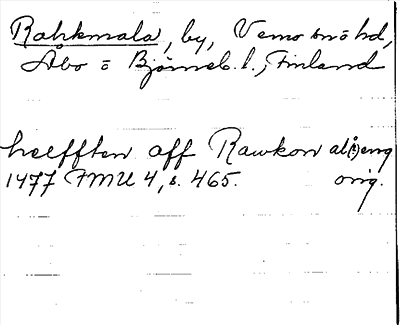 Rahkmala, by, Vemo snö hd,
Åbo o Björneb. l., Finland
helfften aff Rawkon al(?)eng
1477 FMU 4, s. 465. orig.